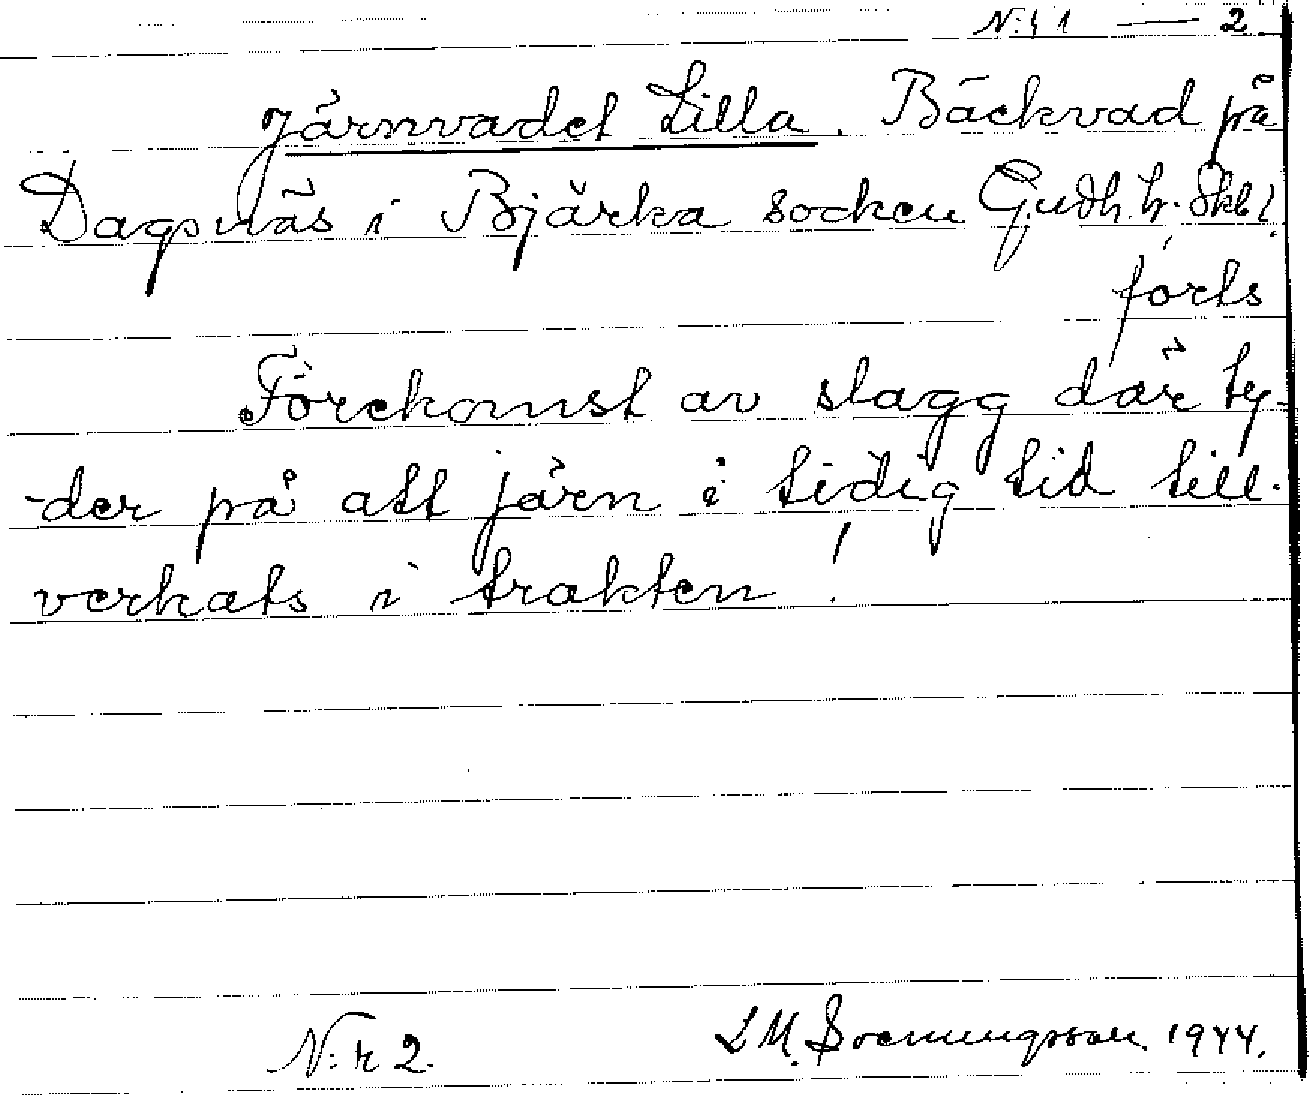 N:r 1 — 2
Järnvadet Lilla. Bäckvad på
Dagsnäs i Bjärka socken Gudh. h. Skbl
forts
Förekomst av slagg där ty-
-der på att järn i tidig tid till-
verkats i trakten!
N:r 2. L M. 1944.